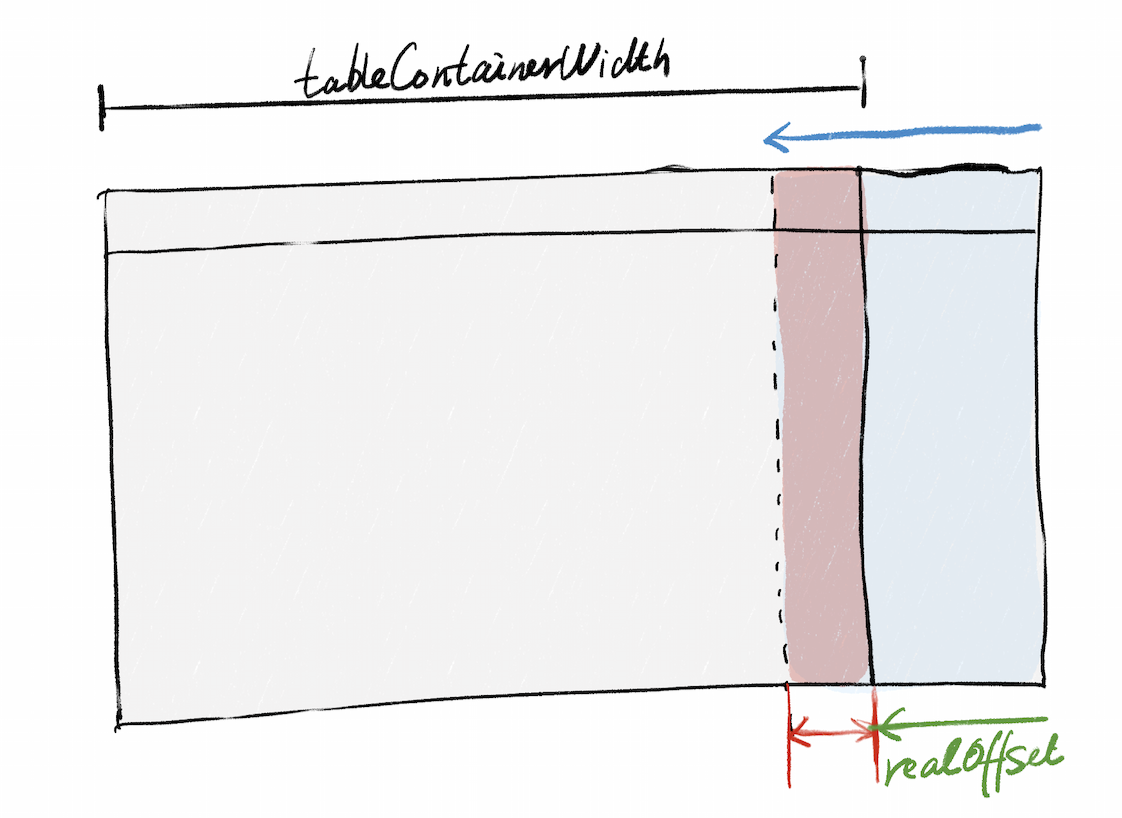 tableContainerWidth
realOffset